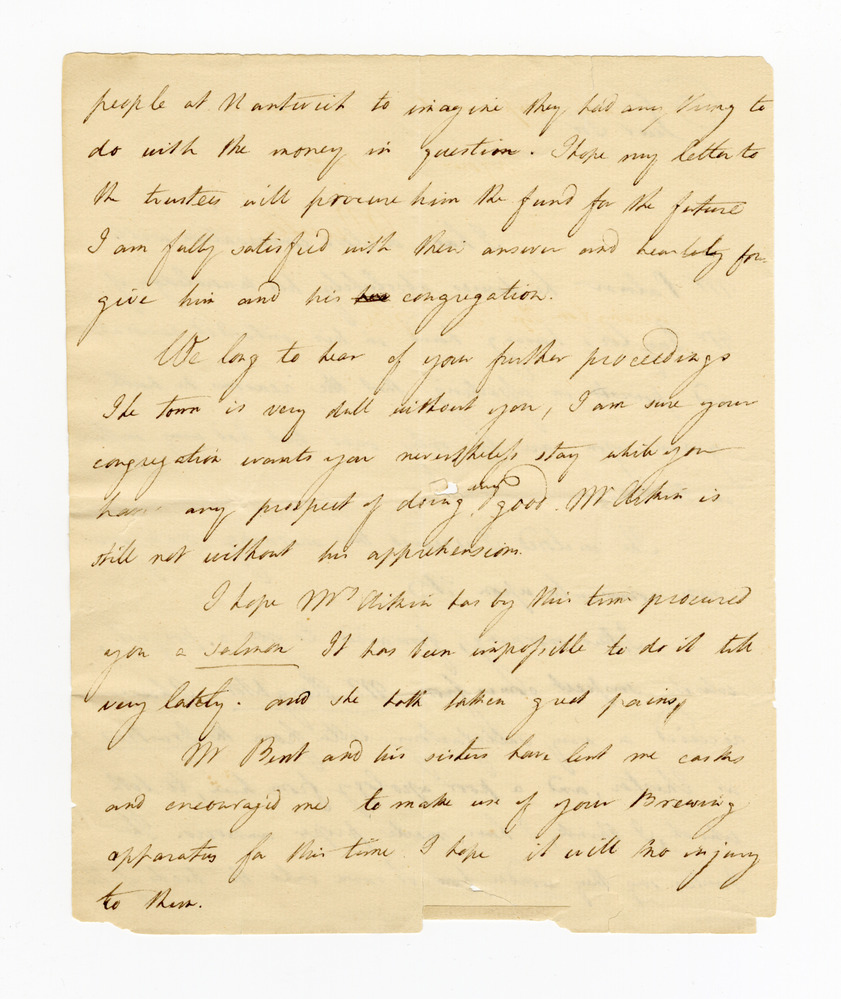 people at Nantwich to imagine they had any thing to
do with the money in question. I hope my letter to
the trustees will procure him the fund for the future
I am fully satisfied with their answer and heartily for-
give him and his congregation.
We long to hear of your further proceedings
The town is very dull without you, I am sure your
congregation wants you nevertheless stay while you
have any prospect of doing any good. Mr Aikin is
still not without his apprehensions.
I hope Mrs Aikin has by this time procured
you a Salmon It has been impossible to do it till
very lately. and she hath taken great pains,
Mr Bent and his sisters have lent me casks
and encouraged me to make use of your Brewing
apparatus for this time I hope it will no injury
to them.